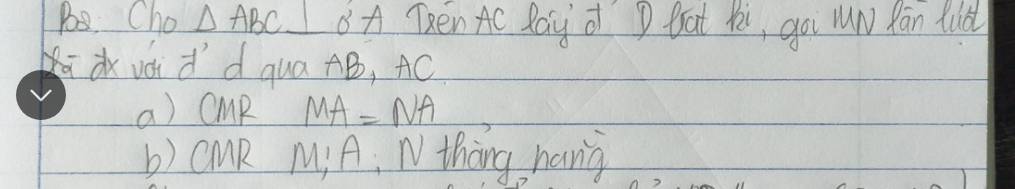 Cho Δ ABC ⊥ ở A Trên AC lấy đ' D bất kì, gọi MN lần lượt
là đx với đ' d qua AB, AC
a) CMR MA = NA
b) CMR M, A, N thẳng hàng